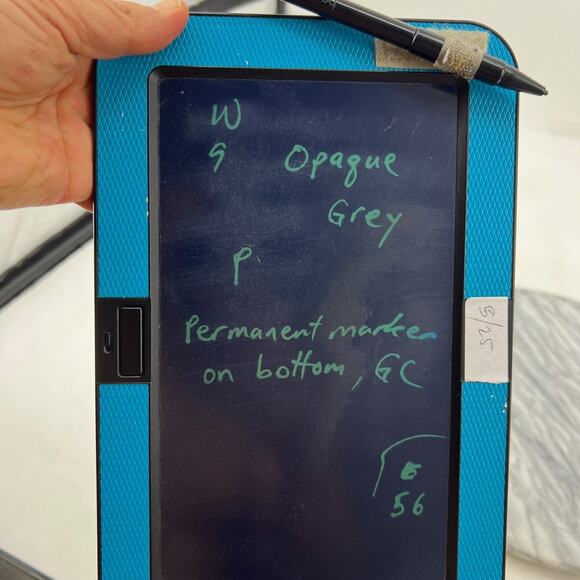 W
9 Opaque
Grey
P
Permanent marker
on bottom, GC
5/25
56